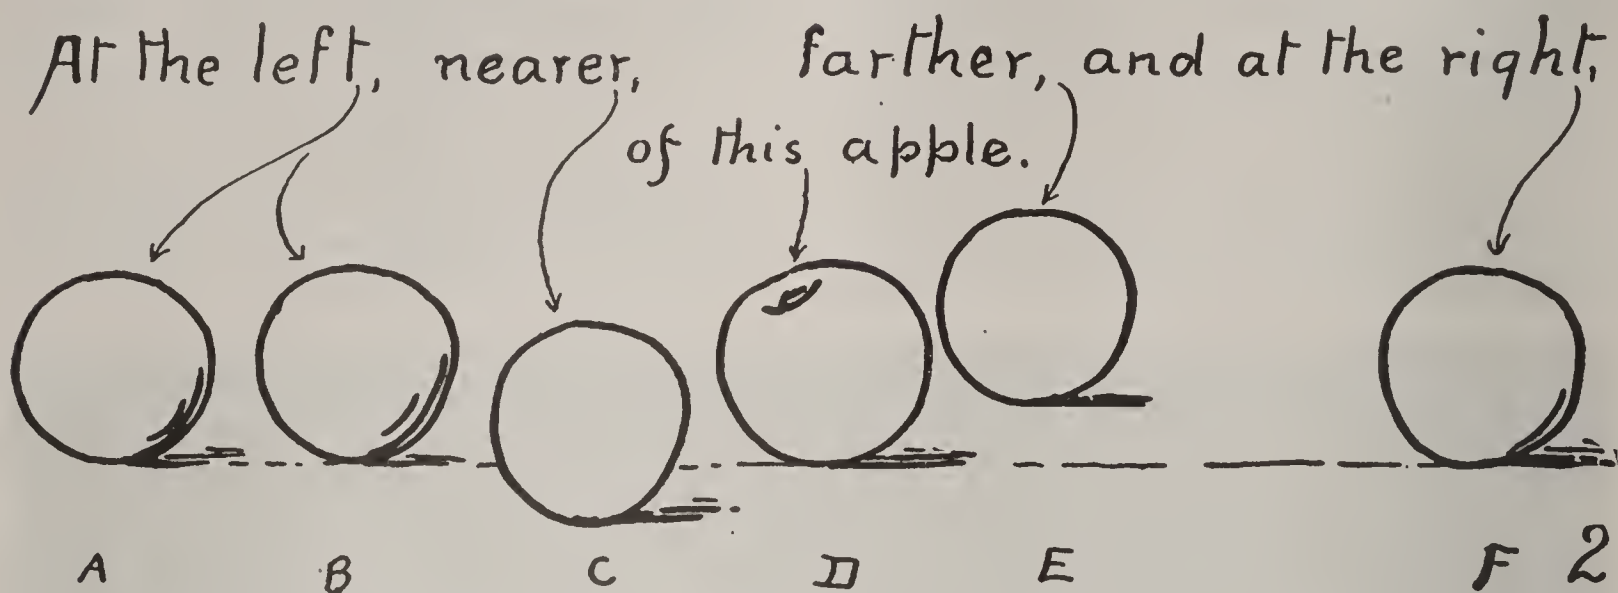 At the left, nearer, farther, and at the right,
of this apple.
A B C D E F 2